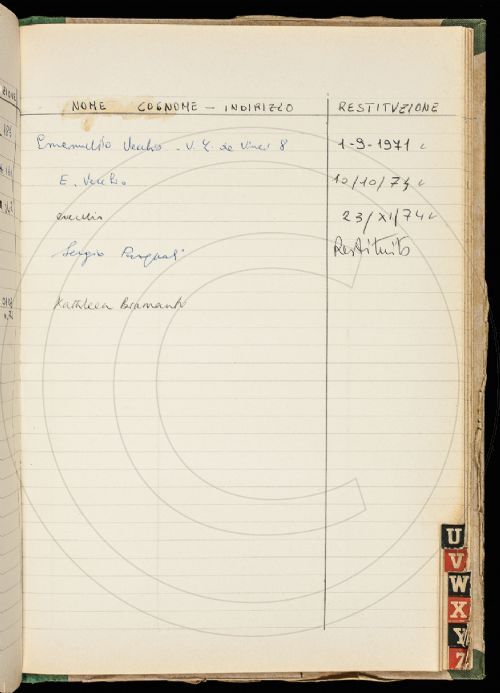 NOME COGNOME - INDIRIZZO RESTITUZIONE
Emanuelito Vecchio . V. L. da Vinci 8 1-9-1971
E. Vecchio 10/10/74
Vecchio 23/XI/74
Sergio Restituito
Kathleen Bramante
U
V
W
X
Y
Z